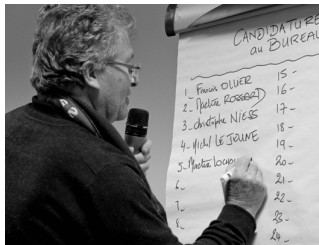 CANDIDATURE
au BUREAU
1_ Francis OLLIER
2_ Martine ROSSARD
3_ christophe NIESS
4_ Michel LE JEUNE
5_ Martine
6_
7_
8_
15 -
16 -
17 -
18 -
19 -
20 -
21 -
22 -
23 -
24 -